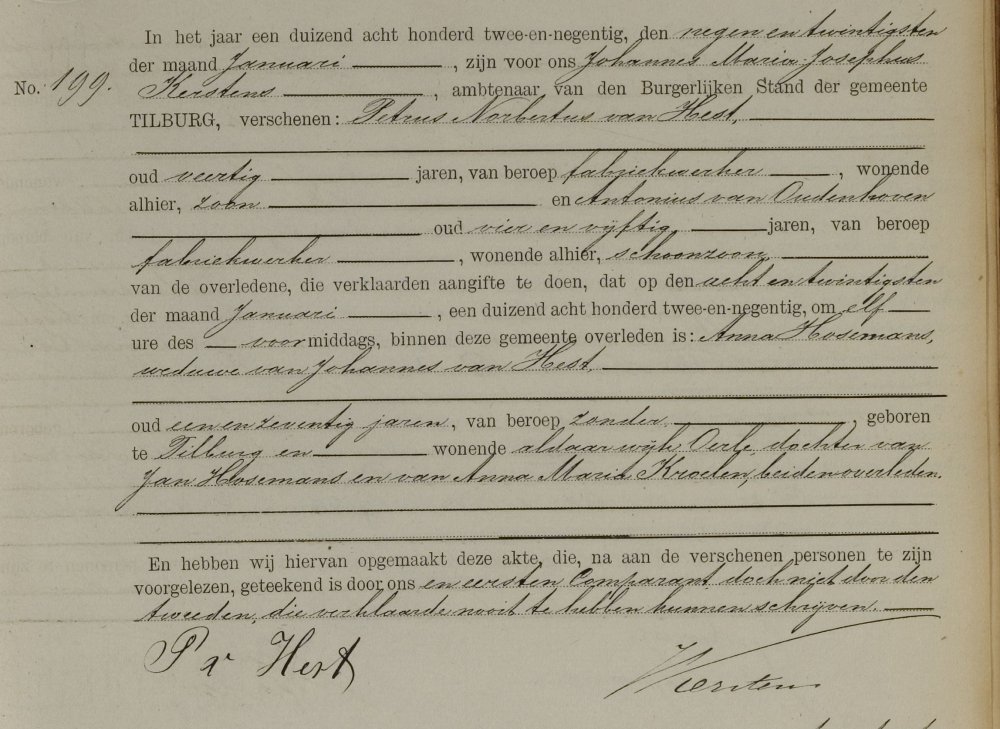 In het jaar een duizend acht honderd twee-en-negentig, den negen en twintigsten
der maand Januari, zijn voor ons Johannes Maria Josephus
No. 199. Kerstens, ambtenaar van den Burgerlijken Stand der gemeente
TILBURG, verschenen: Petrus Norbertus van Hest,
oud veertig jaren, van beroep fabriekwerker, wonende
alhier, zoon en Antonius van Oudenhoven
oud vier en vijftig jaren, van beroep
fabriekwerker, wonende alhier, schoonzoon
van de overledene, die verklaarden aangifte te doen, dat op den acht en twintigsten
der maand Januari, een duizend acht honderd twee-en-negentig, om elf
ure des voormiddags, binnen deze gemeente overleden is: Anna Hosemans,
weduwe van Johannes van Hest,
oud een en zeventig jaren, van beroep zonder, geboren
te Tilburg en wonende aldaar wijk Oerle, dochter van
Jan Hosemans en van Anna Maria Kroeten, beiden overleden.
En hebben wij hiervan opgemaakt deze akte, die, na aan de verschenen personen te zijn
voorgelezen, geteekend is door ons en eersten Comparant doch niet door den
tweeden, die verklaarde nooit te hebben kunnen schrijven.
P v Hest
Kerstens